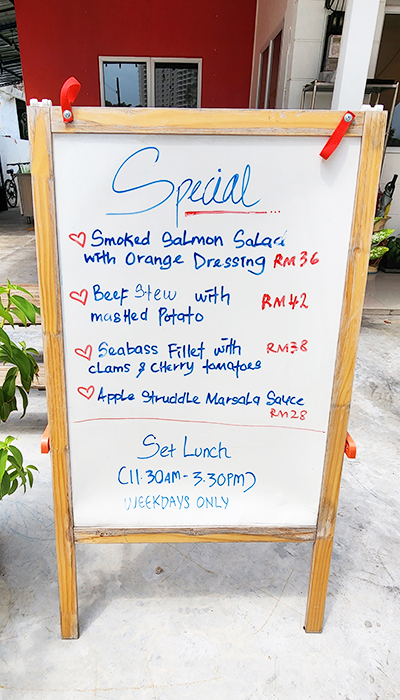 Special
Smoked Salmon Salad
with Orange Dressing RM36
Beef Stew with RM42
mashed Potato
Seabass Fillet with RM38
clams & cherry tomatoes
Apple Struddle Marsala Sauce
RM28
Set Lunch
(11.30AM - 3.30PM)
WEEKDAYS ONLY